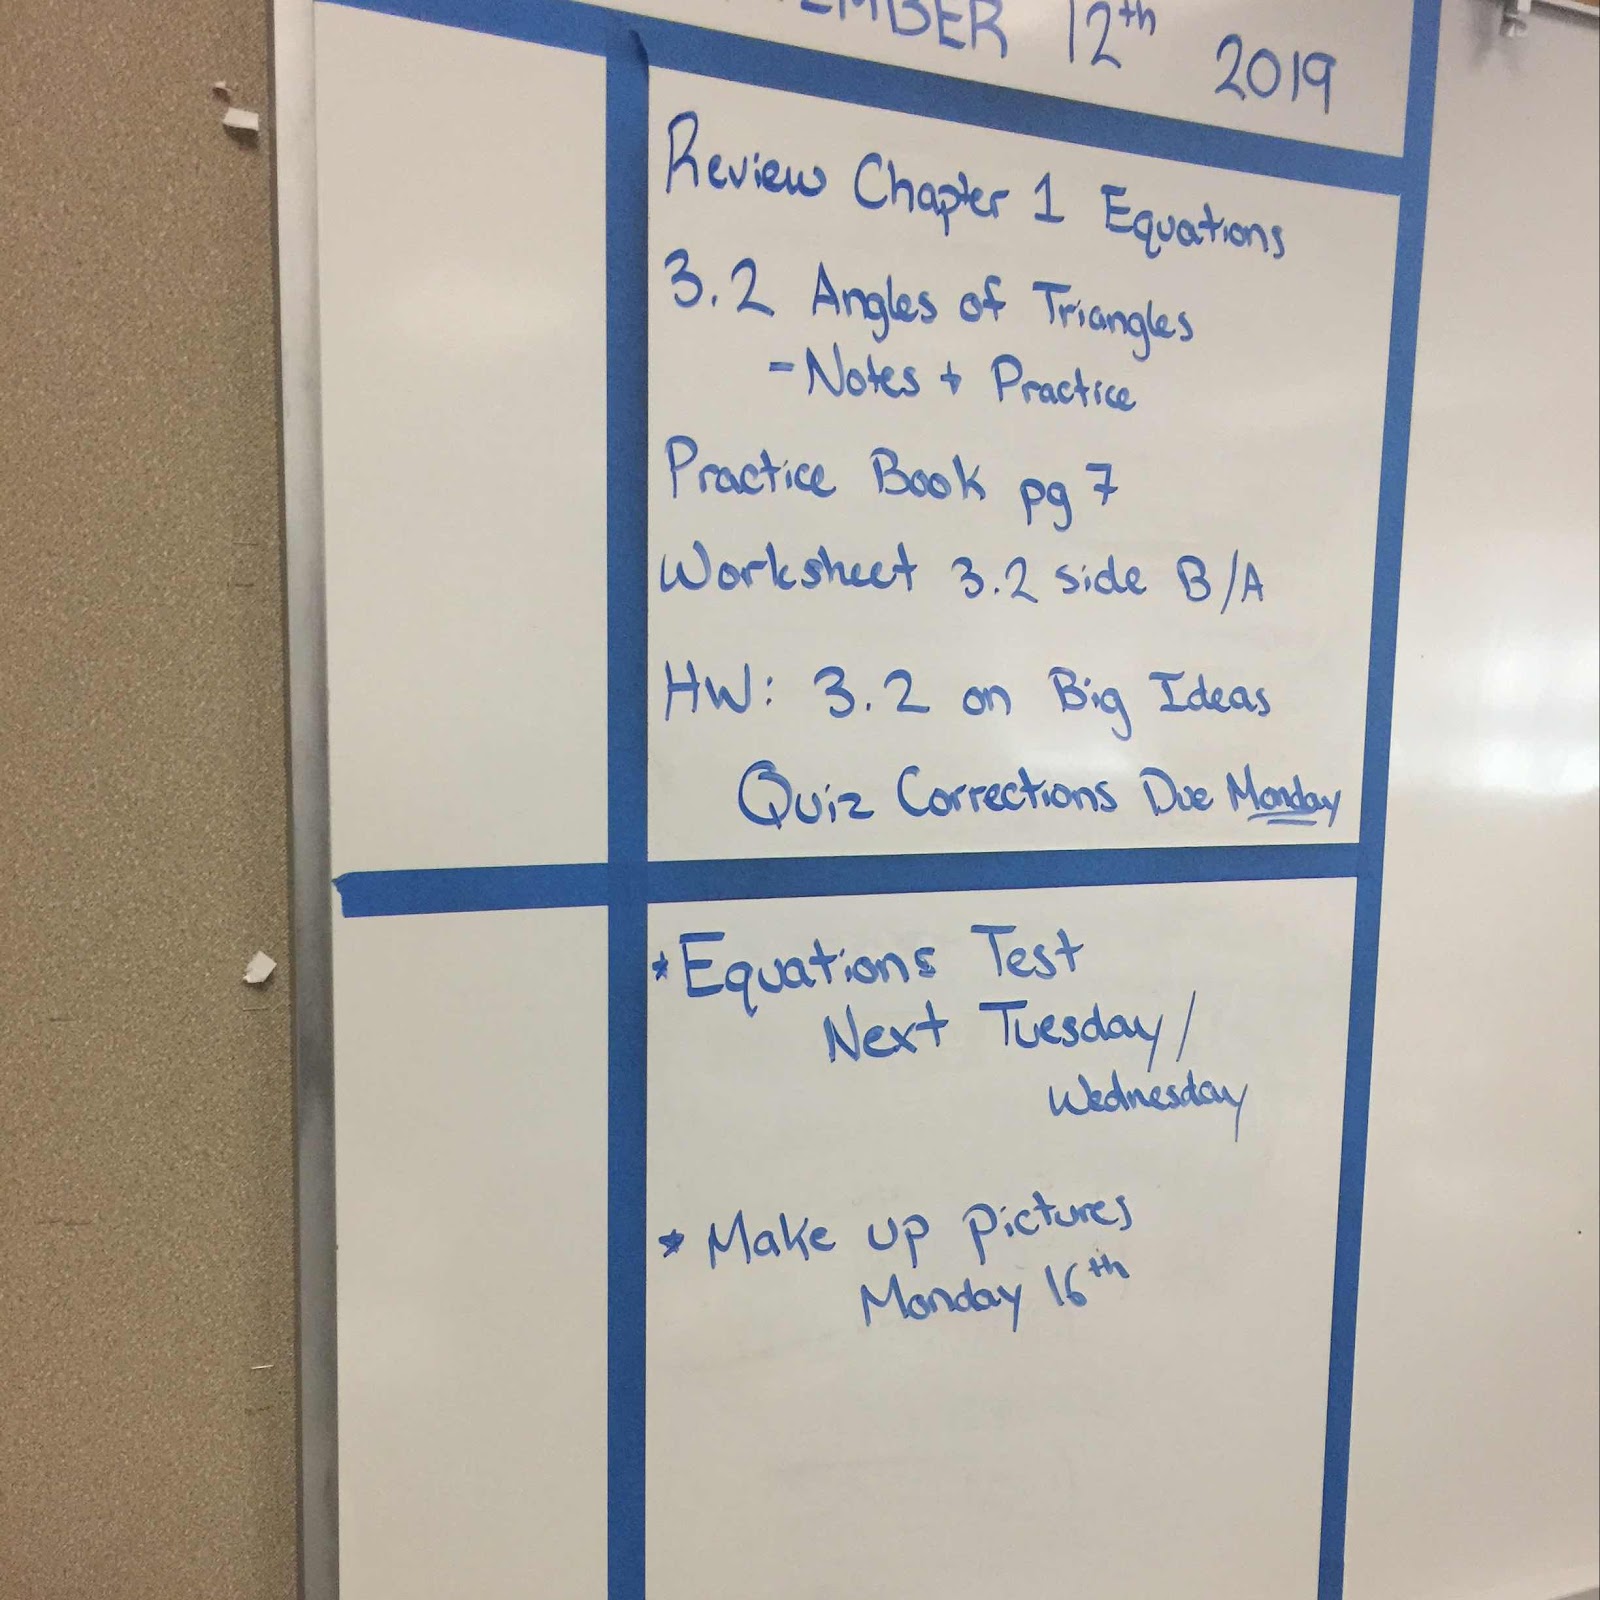 12th 2019
Review Chapter 1 Equations
3.2 Angles of Triangles
- Notes + Practice
Practice Book pg 7
Worksheet 3.2 side B/A
HW: 3.2 on Big Ideas
Quiz Corrections Due Monday
* Equations Test
Next Tuesday/
Wednesday
* Make up pictures
Monday 16th